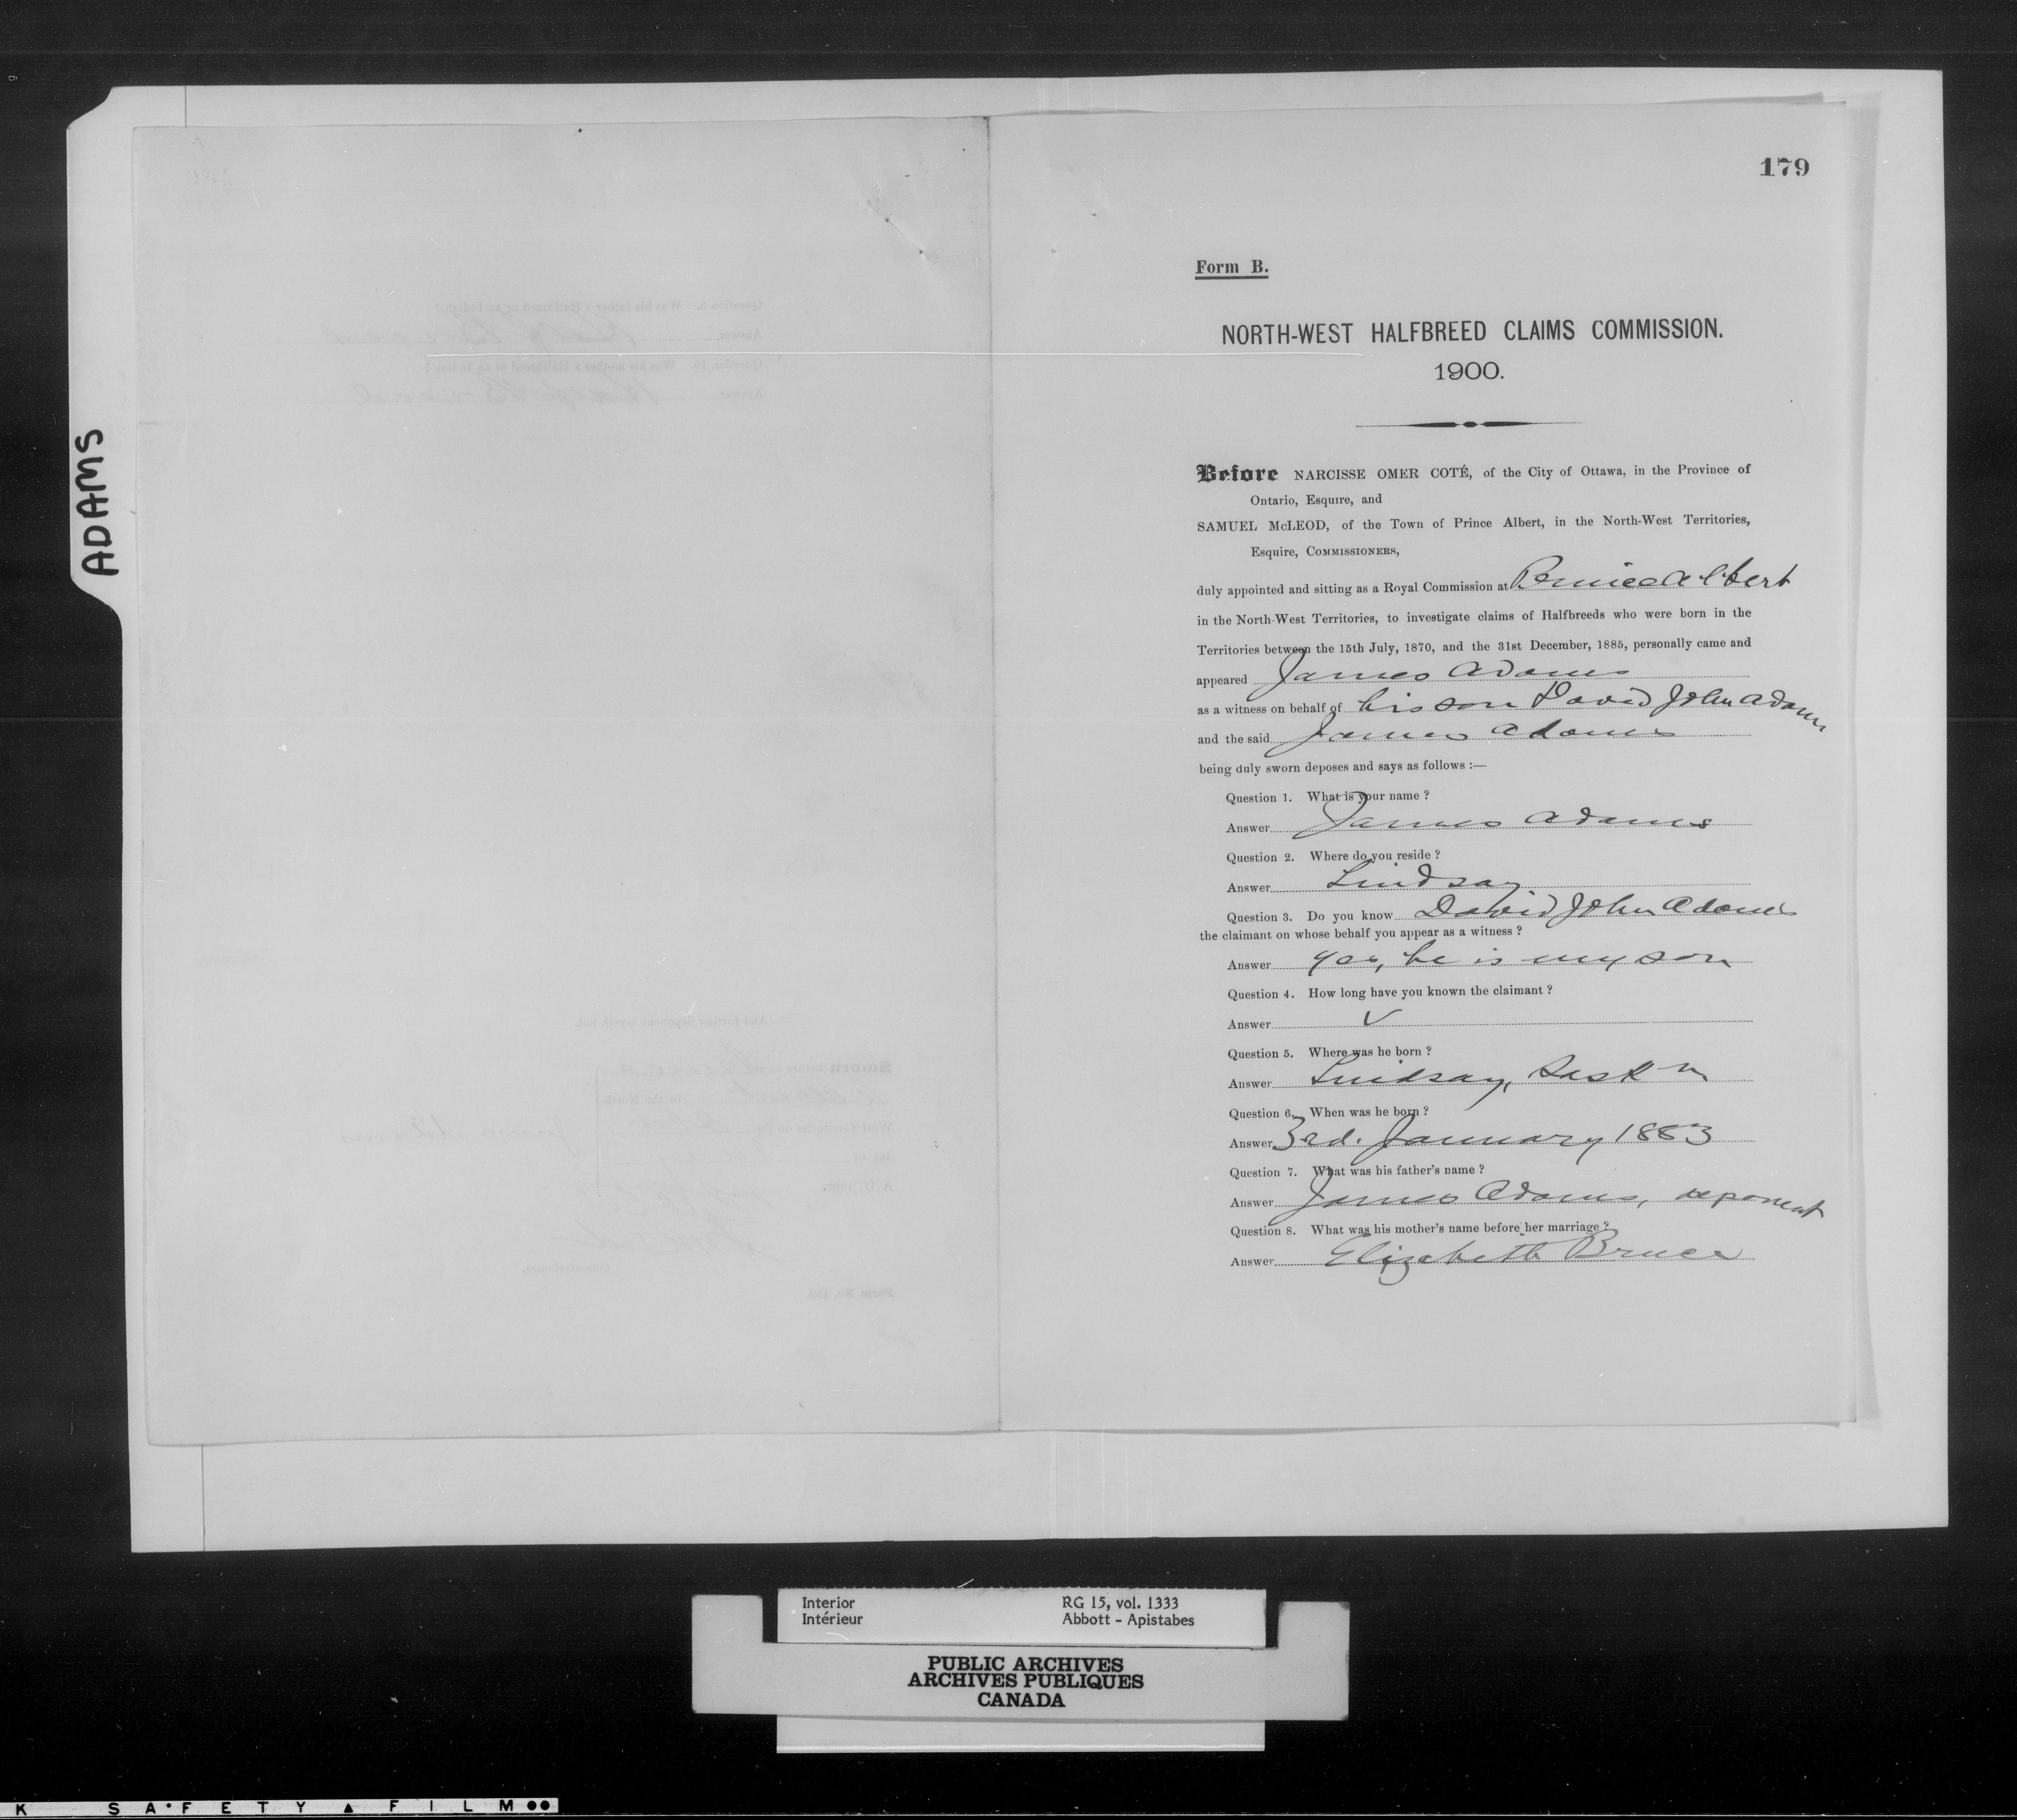 179
Form B.
NORTH-WEST HALFBREED CLAIMS COMMISSION.
1900.
Before NARCISSE OMER COTÉ, of the City of Ottawa, in the Province of
Ontario, Esquire, and
SAMUEL McLEOD, of the Town of Prince Albert, in the North-West Territories,
Esquire, COMMISSIONERS,
duly appointed and sitting as a Royal Commission at Prince Albert
in the North-West Territories, to investigate claims of Halfbreeds who were born in the
Territories between the 15th July, 1870, and the 31st December, 1885, personally came and
appeared James Adams
as a witness on behalf of his son David John Adams
and the said James Adams
being duly sworn deposes and says as follows :—
Question 1. What is your name ?
Answer James Adams
Question 2. Where do you reside ?
Answer Lindsay
Question 3. Do you know David John Adams
the claimant on whose behalf you appear as a witness ?
Answer yes, he is my son
Question 4. How long have you known the claimant ?
Answer ✓
Question 5. Where was he born ?
Answer Lindsay, Sask n
Question 6. When was he born ?
Answer 3rd. January 1883
Question 7. What was his father's name ?
Answer James Adams, deponent
Question 8. What was his mother's name before her marriage ?
Answer Elizabeth Bruce
ADAMS
Question 9. Was his father a Halfbreed or an Indian ?
Answer Half Breed
Question 10. Was his mother a Halfbreed or an Indian ?
Answer Half Breed
And further deponent sayeth not.
Sworn before me at
in the North-
West Territories on the
James Adams
day of
A.D. 1900.
Commissioner.
Form No.
Interior
Intérieur
RG 15, vol. 1333
Abbott - Apistabes
PUBLIC ARCHIVES
ARCHIVES PUBLIQUES
CANADA
K SAFETY ▲ FILM ●●